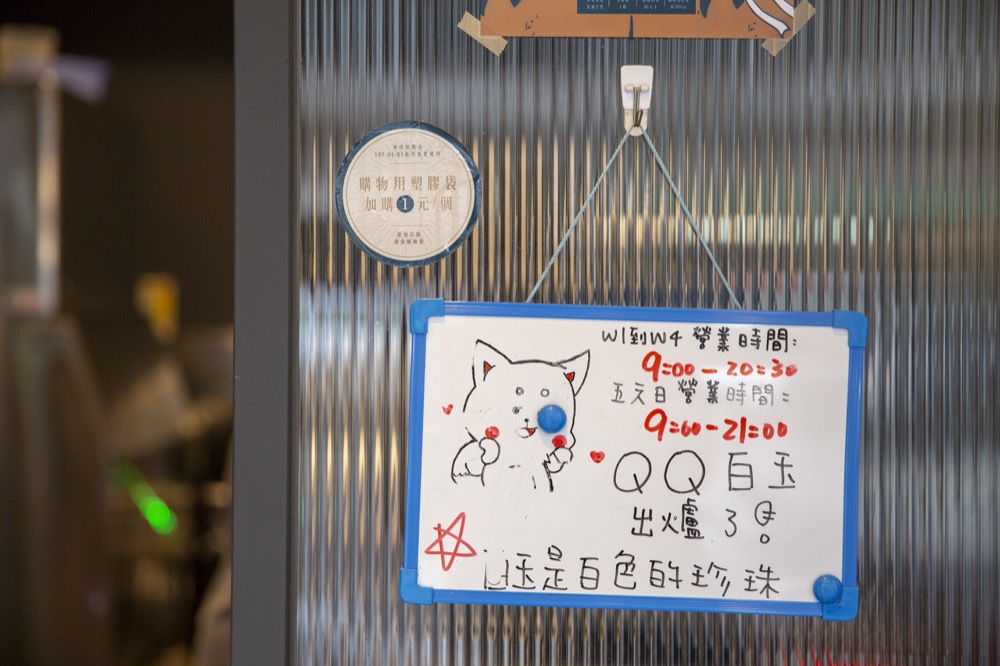 購物用塑膠袋
加購1元/個
W1到W4 營業時間:
9:00-20:30
五六日營業時間:
9:00-21:00
QQ白玉
出爐了!
白玉是白色的珍珠